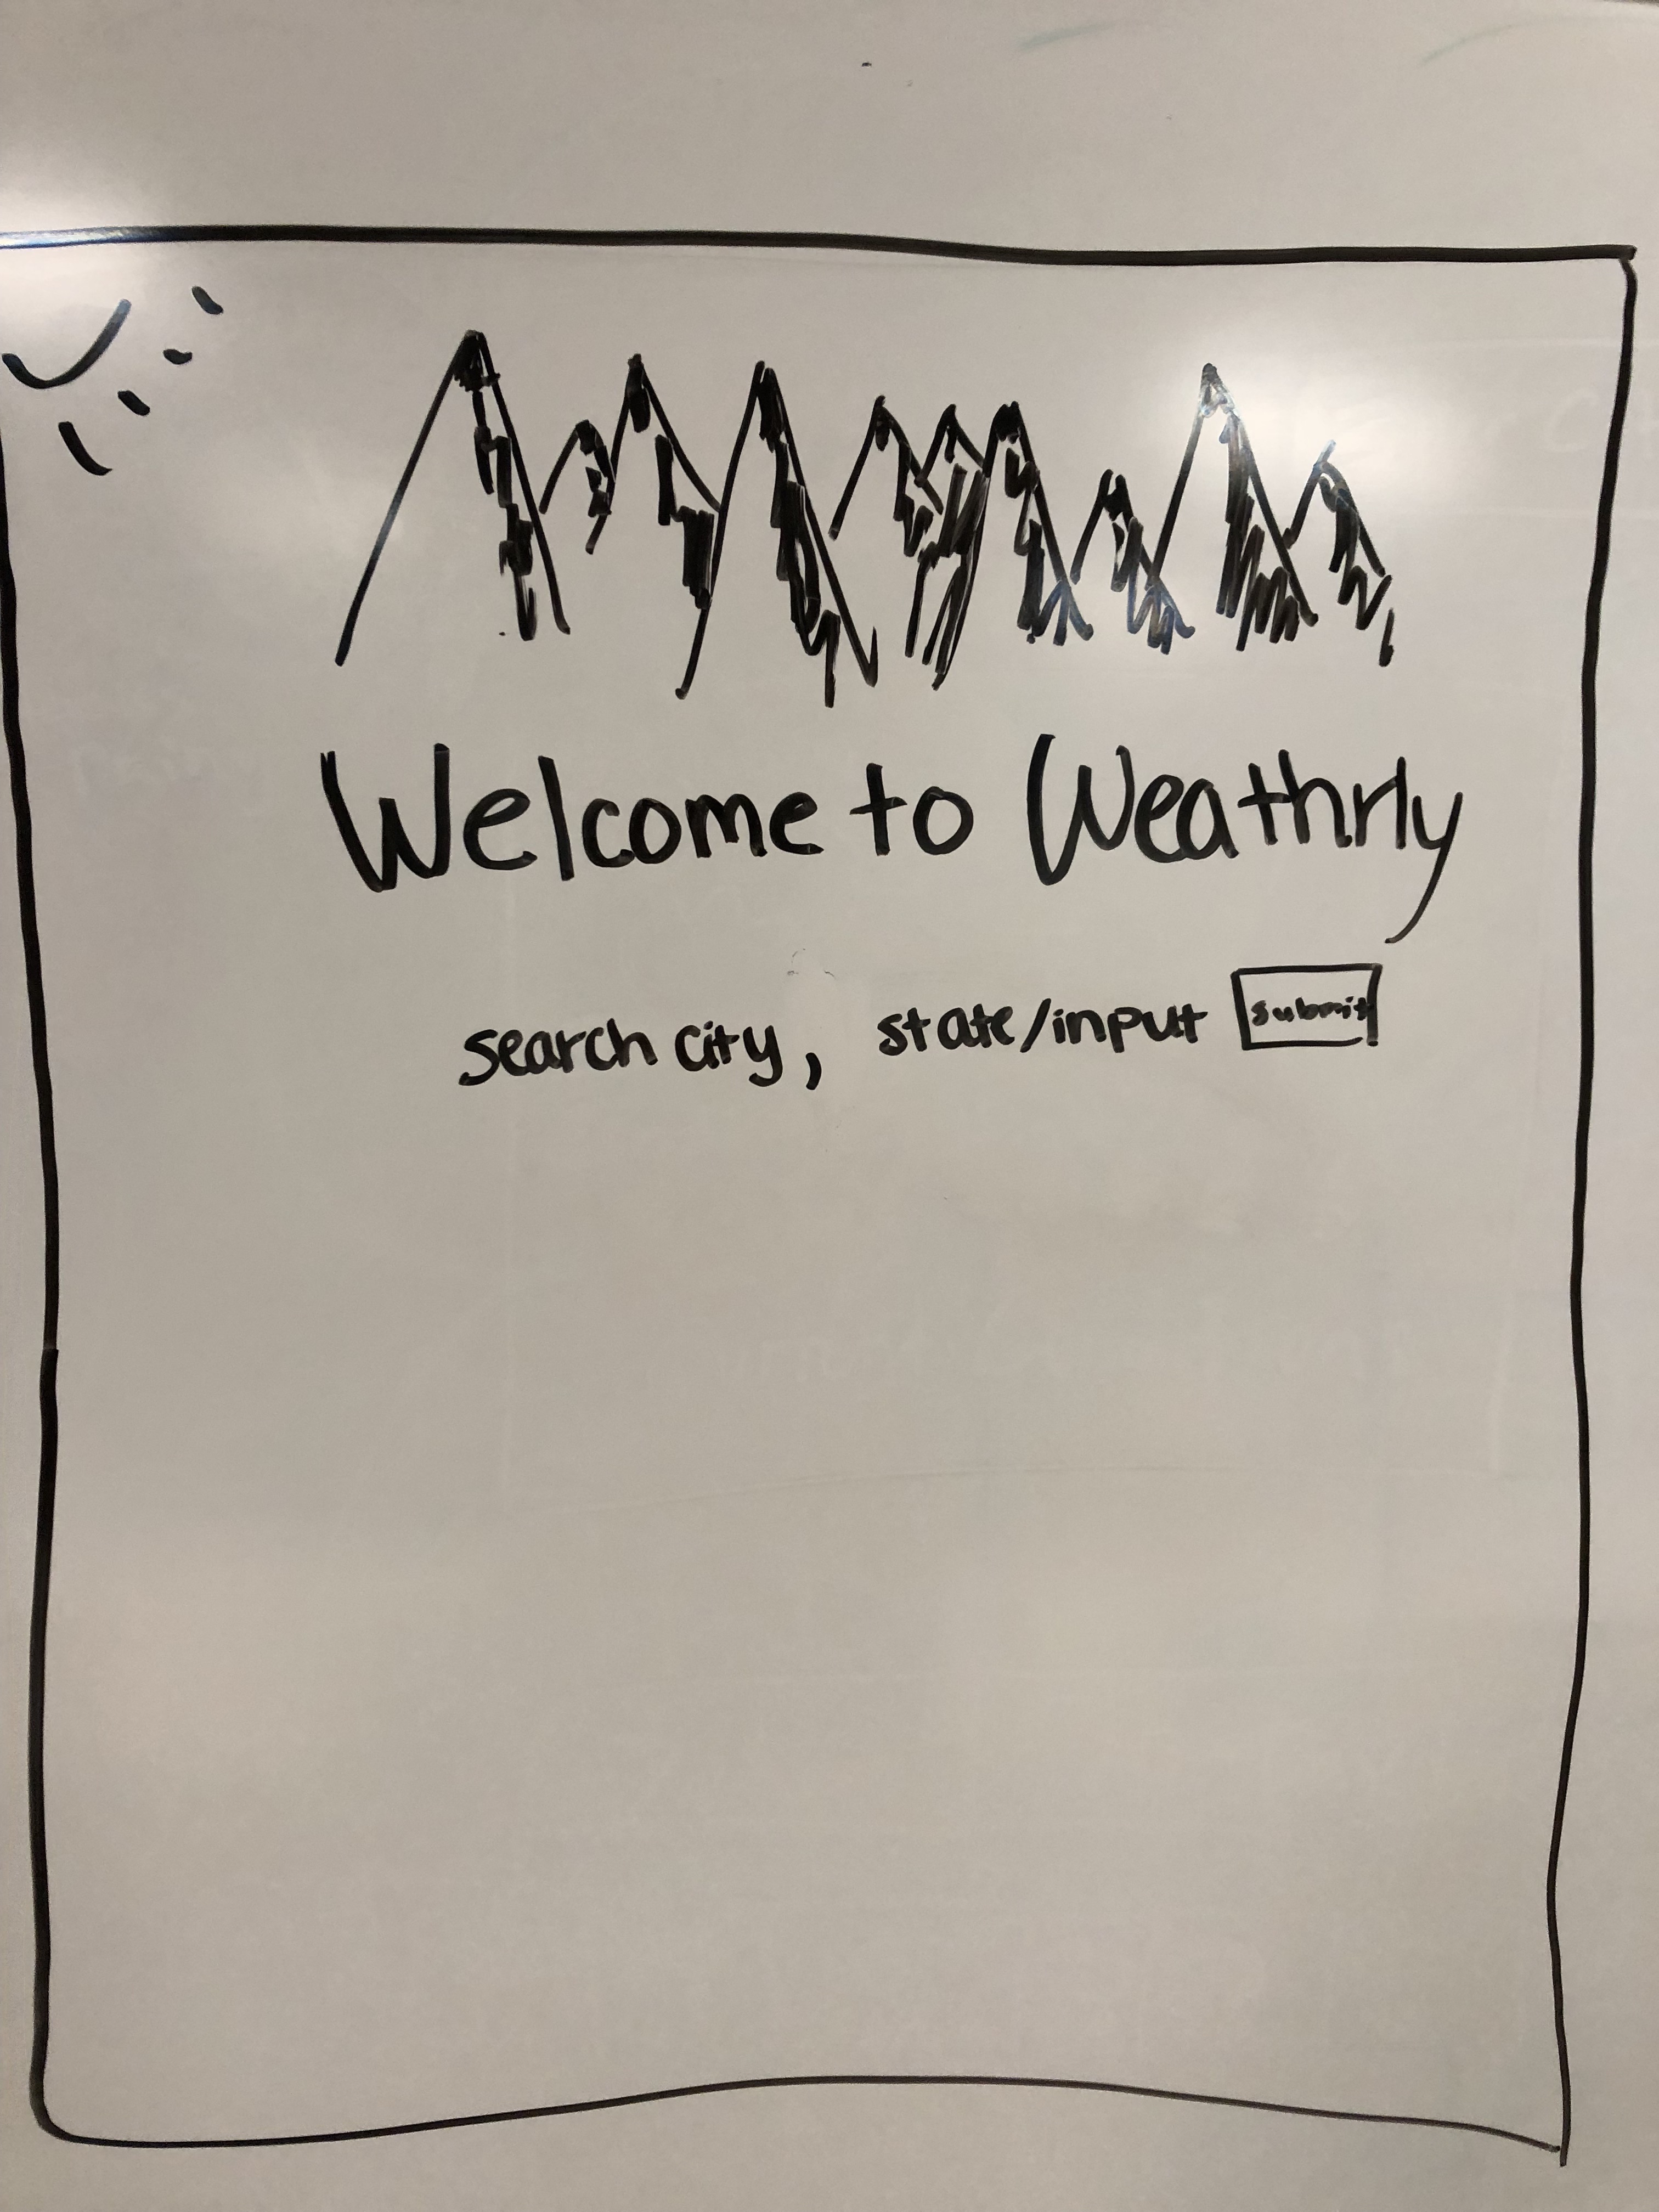 Welcome to Weathrly
search city, state/input submit